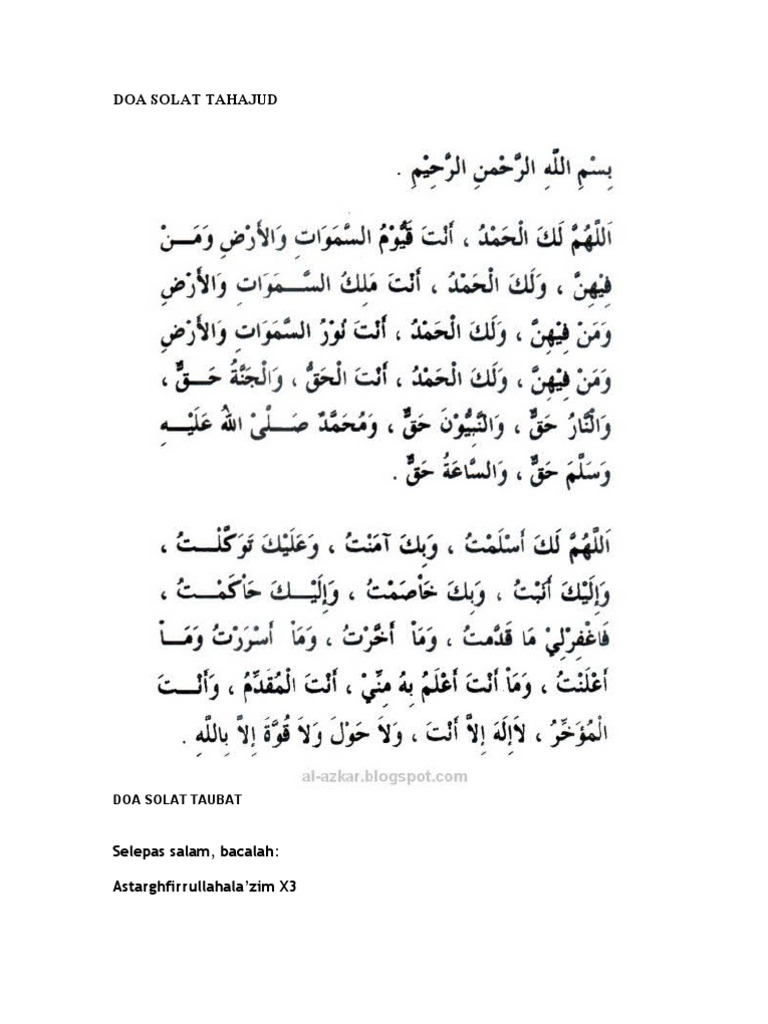 DOA SOLAT TAHAJUD
بِسْمِ اللَّهِ الرَّحْمنِ الرَّحِيْمِ .
اَللَّهُمَّ لَكَ الْحَمْدُ ، أَنْتَ قَيُّوْمُ السَّمَوَاتِ وَالأَرْضِ وَمَـــنْ
فِيْهِنَّ ، وَلَكَ الْحَمْدُ ، أَنْتَ مَلِكُ السَّـــمَوَاتِ وَالأَرْضِ
وَمَنْ فِيْهِنَّ ، وَلَكَ الْحَمْدُ ، أَنْتَ نُوْرُ السَّمَوَاتِ وَالأَرْضِ
وَمَنْ فِيْهِنَّ ، وَلَكَ الْحَمْدُ ، أَنْتَ الْحَقُّ ، وَالْجَنَّةُ حَـــقٌّ ،
وَالْنَّارُ حَقٌّ ، وَالنَّبِيُّوْنَ حَقٌّ ، وَمُحَمَّدٌ صَـــلَّىْ اللهُ عَلَيْـــهِ
وَسَلَّمَ حَقٌّ ، وَالسَّاعَةُ حَقٌّ .
اَللَّهُمَّ لَكَ أَسْلَمْتُ ، وَبِكَ آمَنْتُ ، وَعَلَيْكَ تَوَكَّلْـــتُ ،
وَإِلَيْكَ أَنَبْتُ ، وَبِكَ خَاْصَمْتُ ، وَإِلَيْـــكَ حَاْكَمْـــتُ ،
فَاغْفِرْلِيْ مَا قَدَّمتُ ، وَمَاْ أَخَّرْتُ ، وَمَاْ أَسْرَرْتُ وَمَـــاْ
أَعْلَنْتُ ، وَمَاْ أَنْتَ أَعْلَمُ بِهُ مِنِّيْ ، أَنْتَ الْمُقَدِّمُ ، وَأَنْـــتَ
الْمُؤَخِّرُ ، لاَإِلَهَ إِلاَّ أَنْتَ ، وَلاَ حَوْلَ وَلاَ قُوَّةَ إِلاَّ بِاللَّهِ .
al-azkar.blogspot.com
DOA SOLAT TAUBAT
Selepas salam, bacalah:
Astarghfirrullahala’zim X3